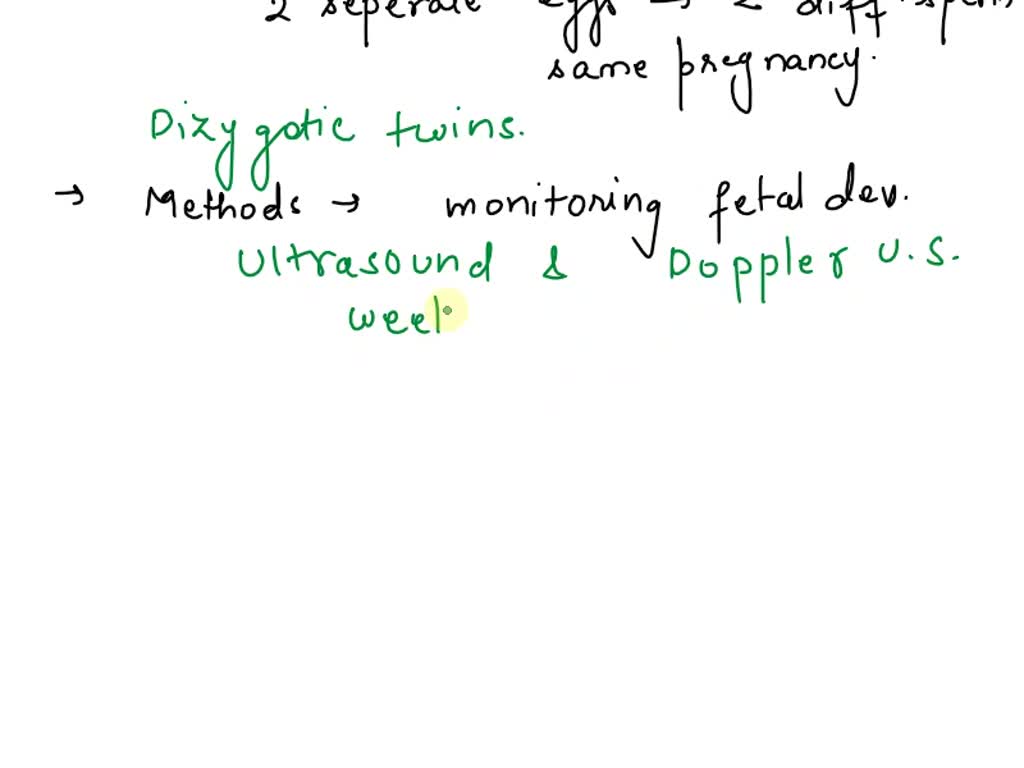 2 seperate eggs → 2 diff sperm
same pregnancy.
Dizygotic twins.
→ Methods → monitoring fetal dev.
Ultrasound & Doppler U.S.
week